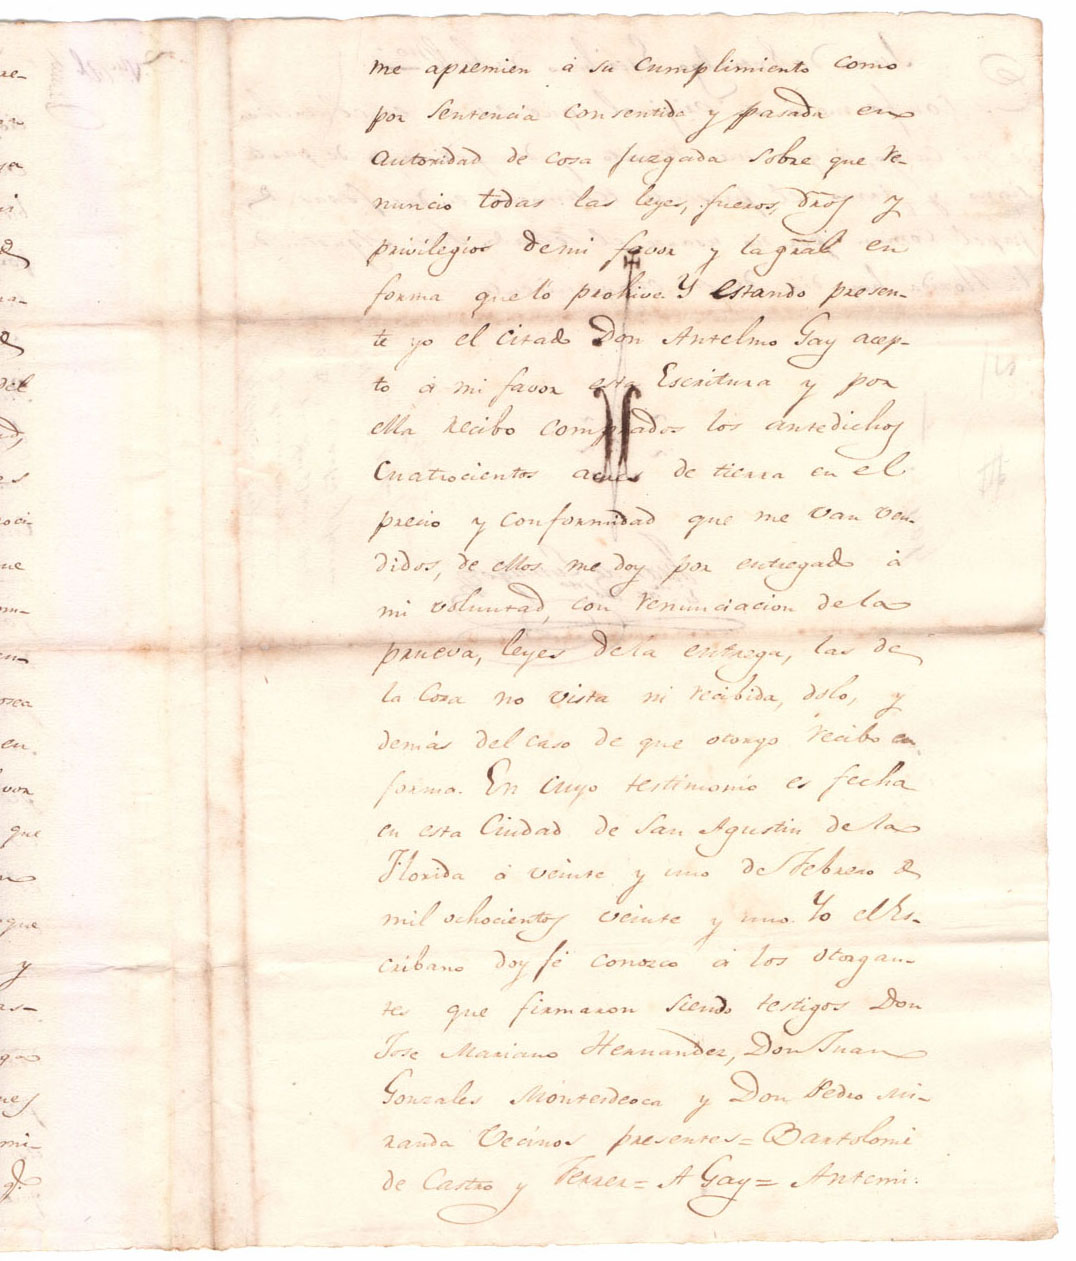 me apremien á su cumplimiento como
por Sentencia consentida y pasada en
autoridad de cosa juzgada sobre que re-
nuncio todas las leyes, fueros, dros y
privilegios de mi favor y la gral en
forma que lo prohive. Y estando presen-
te yo el citado Don Antelmo Gay acep-
to á mi favor esta Escritura y por
ella recibo comprados los antedichos
Cuatrocientos acres de tierra en el
precio y conformidad que me van ven-
didos, de ellos me doy por entregado á
mi voluntad, con renunciacion de la
prueva, leyes de la entrega, las de
la Cosa no vista ni recibida, dolo, y
demás del caso de que otorgo recibo en
forma. En cuyo testimonio es fecha
en esta Ciudad de San Agustin de la
Florida á veinte y uno de Febrero de
mil ochocientos veinte y uno. Yo el Es-
cribano doy fé conozco á los otorgan-
tes que firmaron siendo testigos Don
Jose Mariano Hernandez, Don Juan
Gonzales Montesdeoca y Don Pedro Mi-
randa Vecinos presentes = Bartolomé
de Castro y Ferrer = A Gay = Antemi: